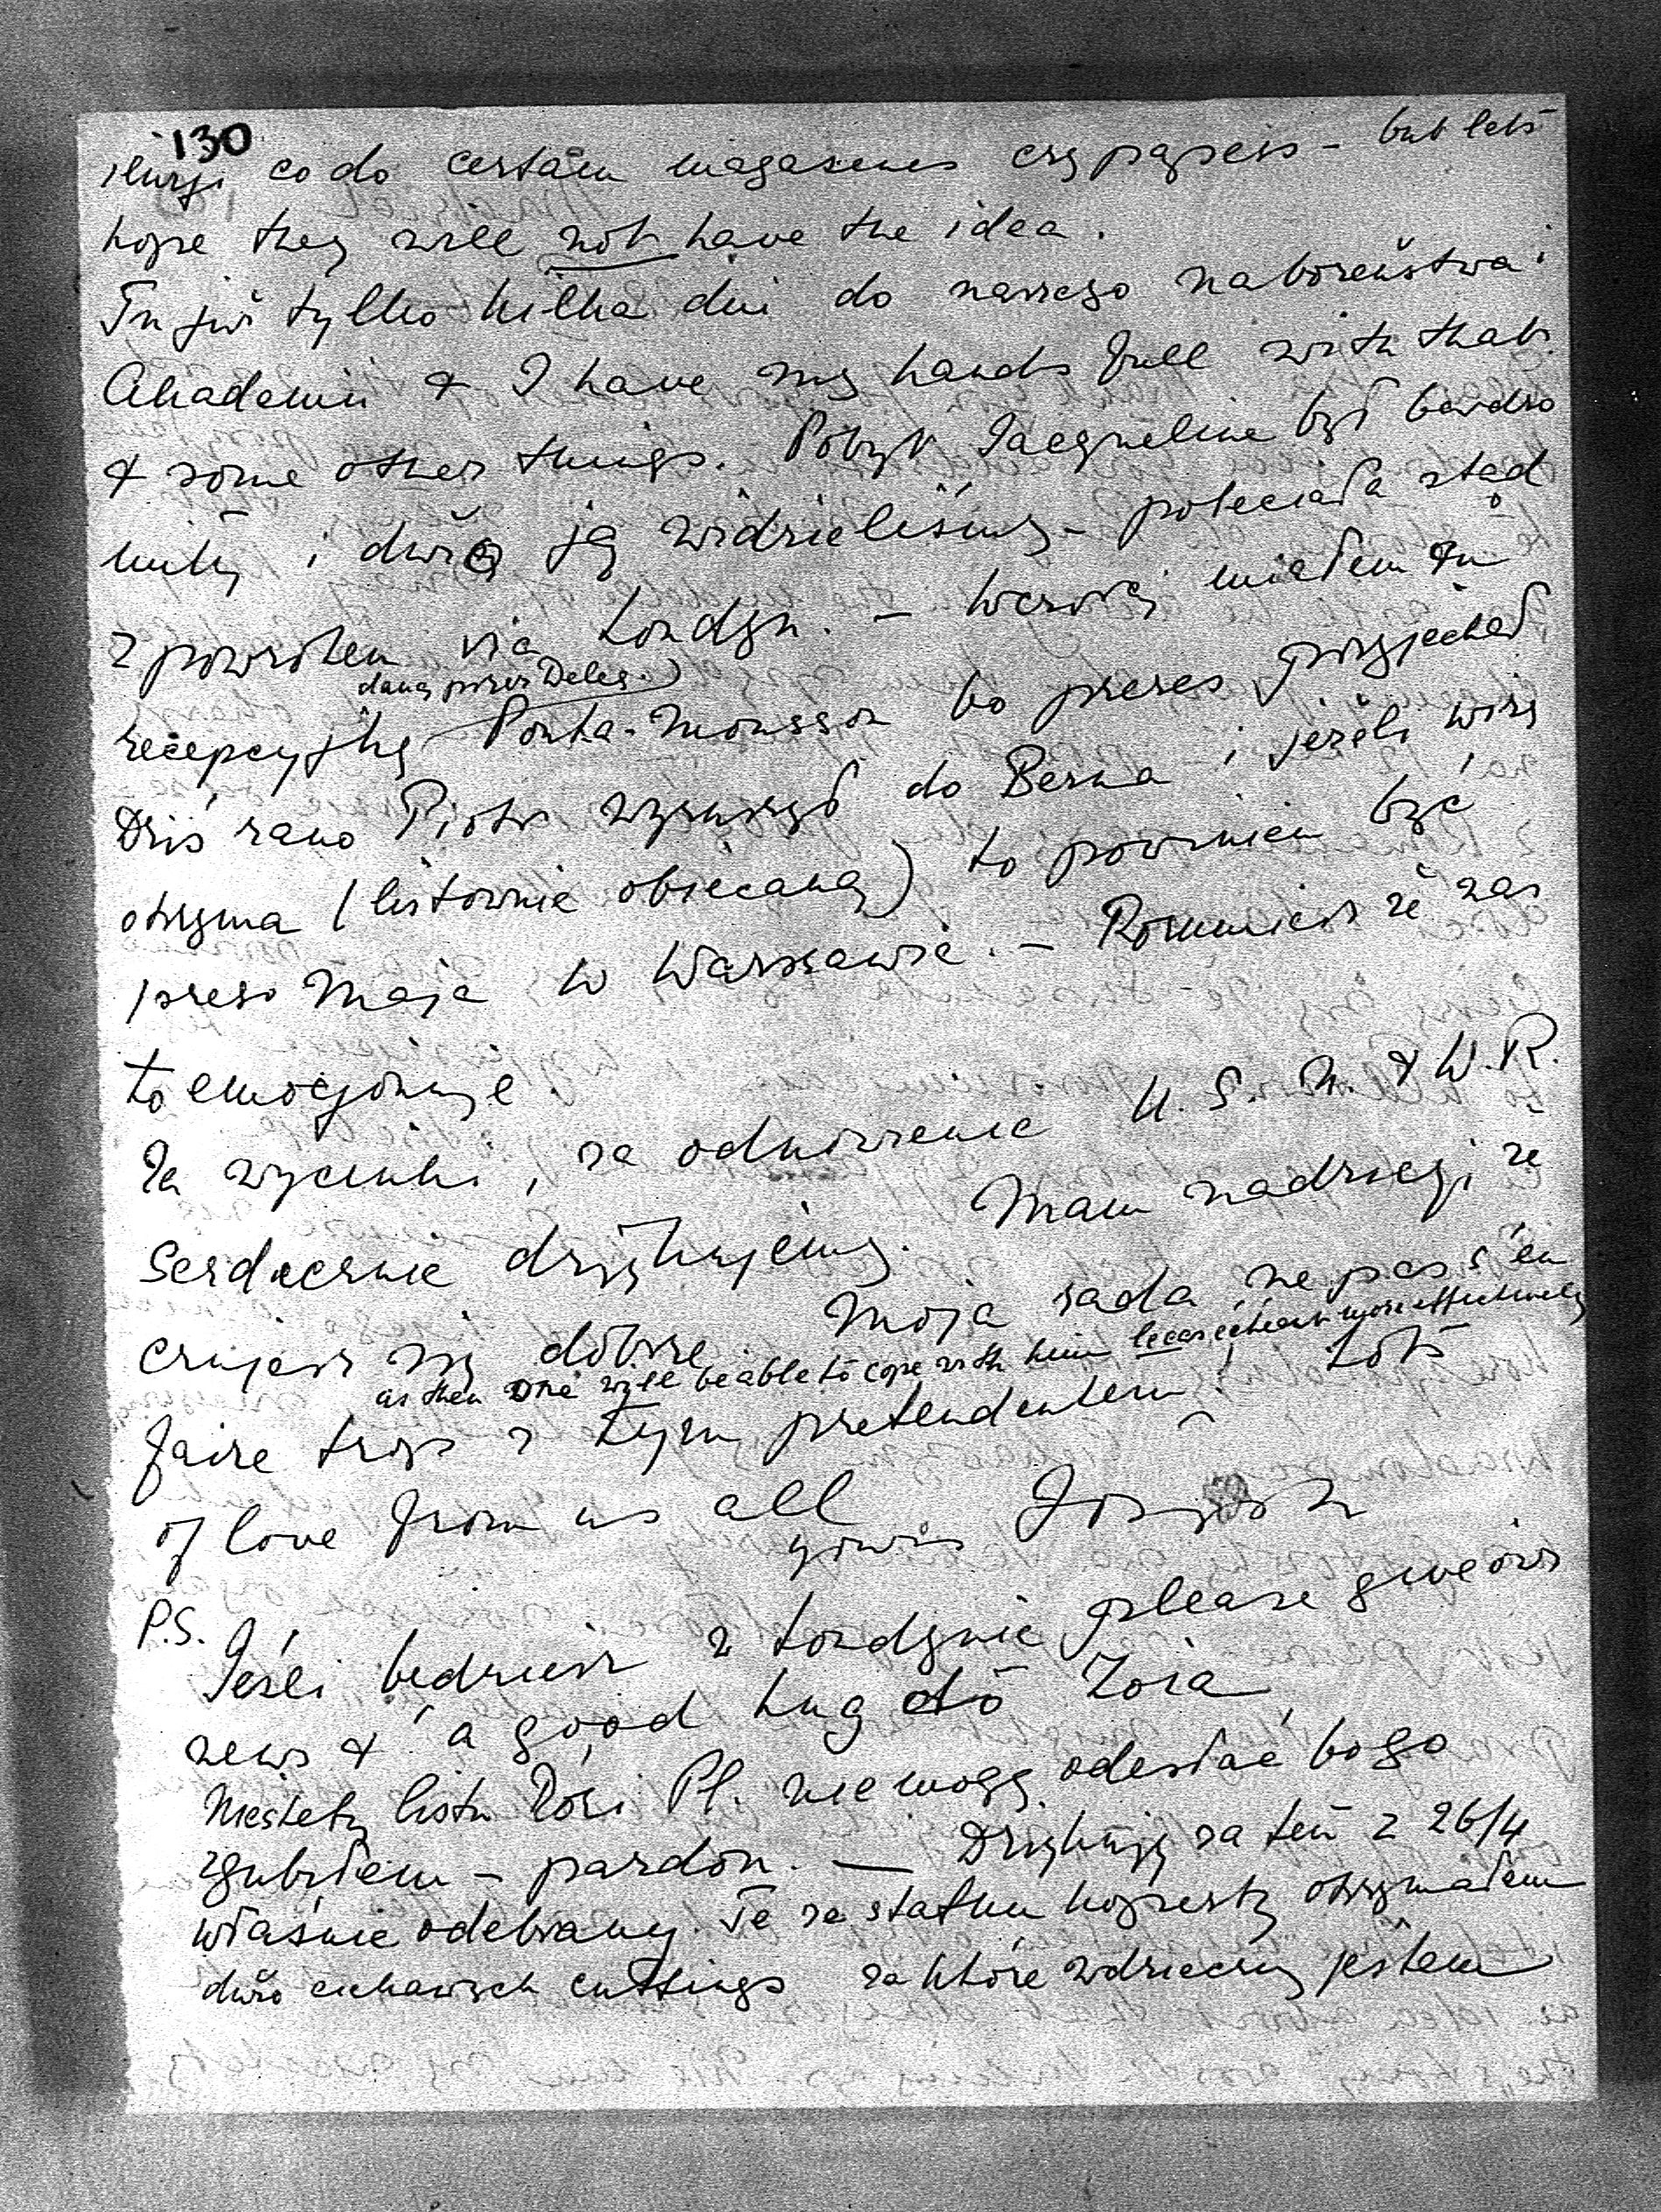 130
iluzji co do certain magasines czy papers - but lets
hope they will not have the idea.
Tu już tylko kilka dni do naszego nabożeństwa i
Akademii & I have my hands full with that
& some other things. Pobyt Jacqueline był bardzo
miły i dużo ją widzieliśmy - poleciała stąd
z powrotem via Londyn. - Wczoraj miałem tu
daną przez Deleg.)
recepcyjkę Ponta-Mousson bo prezes przyjechał
Dziś rano Piotr wyruszył do Berna i jeżeli wizę
otrzyma (listownie obiecaną) to powinien być
przed Maja w Warszawie. - Rozumiesz że nas
to emocjonuje.
Za wycinki, za odnowienie U.S.N. & W.R.
Serdecznie dziękujemy. Mam nadzieję że
czujesz się dobrze. Moja rada, ne pas s'en
as then one will be able to cope with him more effectively
faire trop z tym pretendentem! Lots
of love from us all
yours Józ
P.S. Jeśli będziesz w Londynie please give our
news & a good hug to Zoia
Niestety listu Rózi Pl. nie mogę odesłać bo go
zgubiłem - pardon. — Dziękuję za ten z 26/4
właśnie odebrany. Te ze statku koperty otrzymałem
dużo ciekawych cuttings za które wdzięczny jestem